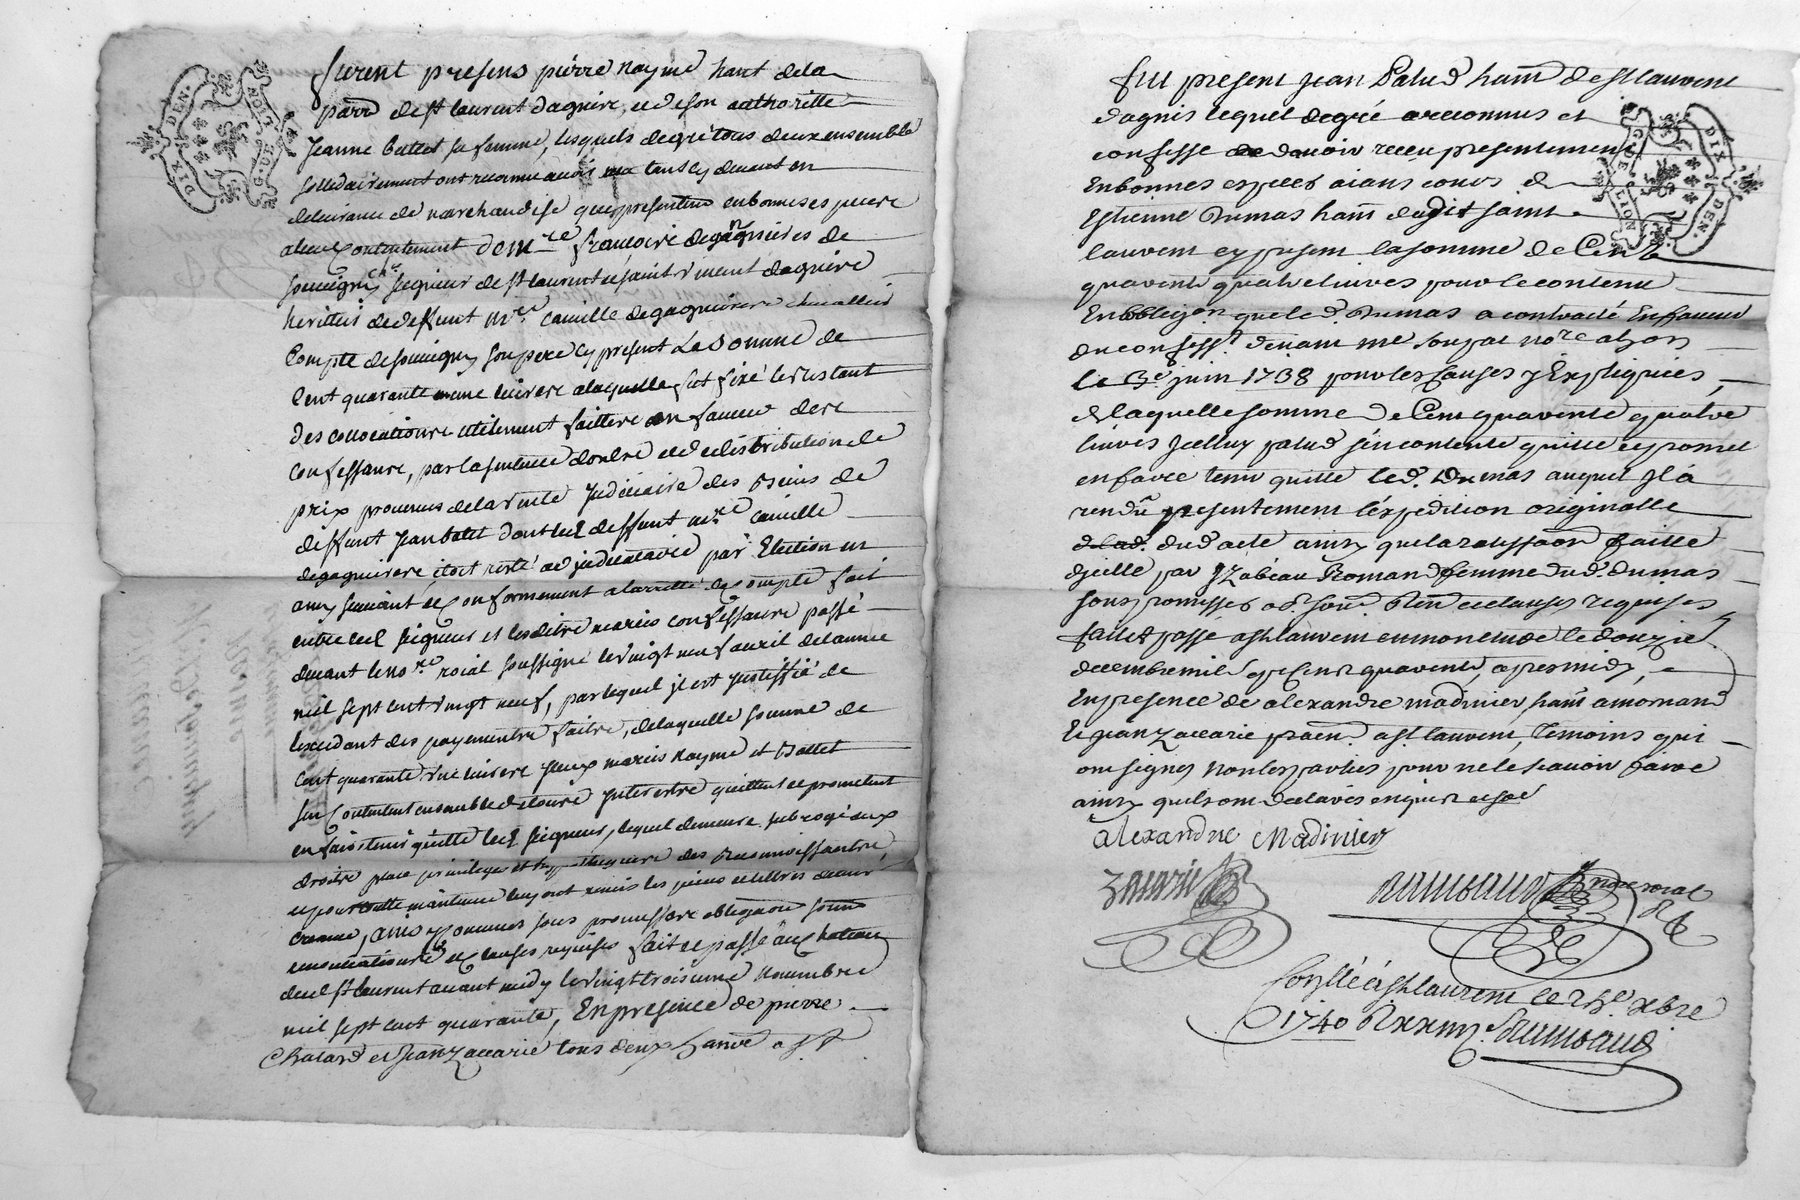 DIX DEN.
G. DE LION
furent presens pierre naymé hant dela
parr de st laurent dagnire, et de son authoritté
Jeanne battet sa femme, lesquels de gré tous deux ensemble
sollidairement ont reconnu avoir tant cy devant en
delivrance de marchandise que presentem en bonnes
a leur contentement de mre francois de gagnieres de
souvigny seigneur de st laurent et saint vincent dagnire
herittier de deffunt mre camille de gagnieres chevallier
Compte de souvigny son pere cy present La somme de
Cent quarante une livres a laquelle fut fixé le restant
des collocations utilement faittes en faveur des
confessants, par la sentence dordre et de distribution de
prix provenus de la vente Judiciaire des biens de
deffunt Jean batet dont led deffunt mre camille
degagnieres etoit resté adjudicataire par Election en
amy suivant et conformement a larretté de compte fait
entre led seigneur et lesdits mariés confessants passé
devant le nore roial soussigné le vingt neuf avril de lannée
mil sept cent vingt neuf, par lequel il est justiffié de
lexcedant des payements faits, de laquelle somme de
Cent quarante une livres yceux mariés naymé et Battet
sen contentent ensemble de tous interets quittent et promettent
en faire tenir quitte led seigneur, lequel demeure subrogé aux
droits place privilege et hypotheques des Reconnoissants,
et pour toutte maintenue luy ont remis les pieces et tittres de leur
creance, ainsy convenu sous promesses obligaõns soumis
renonciations et clauses requises fait et passé au chateau
dud st laurent avant midy le vingt troisieme novembre
mil sept cent quarante, En presence de pierre
Chatard et Jean Zaccarie tous deux hants a st
fut present jean Palud hant de st laurent
dagnis lequel de gré a reconnus et
confessé davoir receu presentement
en bonnes especes aiant cours de
Estienne Dumas hant dudit saint
laurent cy present la somme de Cent
quarante quatre livres pour le contenu
En obligõn que led. Dumas a contracté En faveur
du confesst devant me nore
le 3e juin 1738 pour les causes y Expliquées,
de laquelle somme de Cent quarente quatre
livres Jcelluy palud sen contente quitte et promet
en faire tenir quitte led. Dumas auquel Jl a
rendu presentement lexpedition originalle
dud acte ainsy que la faitte
dycelle par Yzabeau Roman femme dud. dumas
sous promisses obg. soum. Ren et clauses requises
fait et passé a st laurent en mon etude le douzie
decembre mil sept cent quarente, apres midy,
En presence de alexandre madinier hant a mornand
Et jean Zaccarie praend a st laurent, temoins qui
ont signes non les parties pour ne le scavoir faire
ainsy quils ont declarés enquis et som
alexandre Madinier
Zacarie
DIX DEN.
G. DE LION
nore roial
Conllé a st laurent le xbre
1740